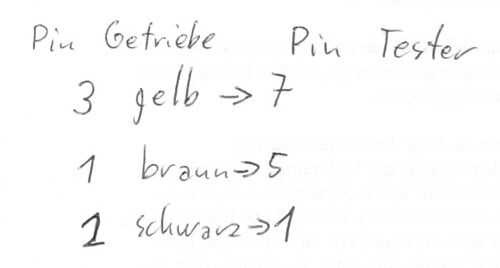 Pin Getriebe Pin Tester
3 gelb → 7
1 braun → 5
2 schwarz → 1